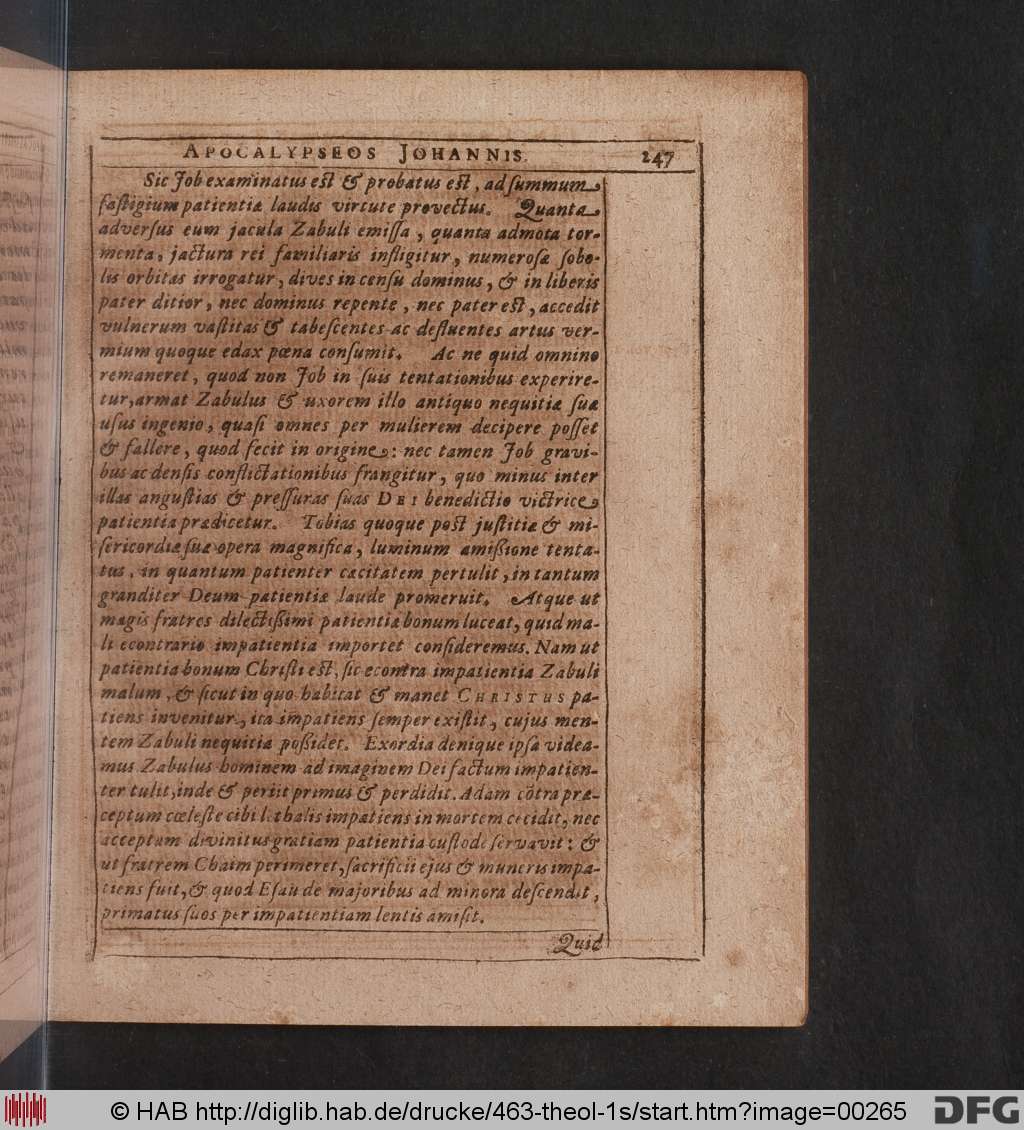 APOCALYPSEOS JOHANNIS. 247
Sic Job examinatus est & probatus est, ad summum
fastigium patientiæ laudis virtute provectus. Quanta
adversus eum jacula Zabuli emissa, quanta admota tor-
menta, jactura rei familiaris infligitur, numerosæ sobo-
lis orbitas irrogatur, dives in censu dominus, & in liberis
pater ditior, nec dominus repente, nec pater est, accedit
vulnerum vastitas & tabescentes ac defluentes artus ver-
mium quoque edax pœna consumit. Ac ne quid omnino
remaneret, quod non Job in suis tentationibus experire-
tur, armat Zabulus & uxorem illo antiquo nequitiæ suæ
usus ingenio, quasi omnes per mulierem decipere posset
& fallere, quod fecit in origine: nec tamen Job gravi-
bus ac densis conflictationibus frangitur, quo minus inter
illas angustias & pressuras suas DEI benedictio victrice
patientia prædicetur. Tobias quoque post justitiæ & mi-
sericordiæ suæ opera magnifica, luminum amißione tenta-
tus, in quantum patienter cæcitatem pertulit, in tantum
granditer Deum patientiæ laude promeruit. Atque ut
magis fratres dilectißimi patientiæ bonum luceat, quid ma-
li econtrario impatientia importet consideremus. Nam ut
patientia bonum Christi est, sic econtra impatientia Zabuli
malum, & sicut in quo habitat & manet CHRISTUS pa-
tiens invenitur, ita impatiens semper existit, cujus men-
tem Zabuli nequitia poßidet. Exordia denique ipsa videa-
mus Zabulus hominem ad imaginem Dei factum impatien-
ter tulit, inde & periit primus & perdidit. Adam cõtra præ-
ceptum cœleste cibi lethalis impatiens in mortem cecidit, nec
acceptam divinitus gratiam patientia custode servavit: &
ut fratrem Chaim perimeret, sacrificii ejus & muneris impa-
tiens fuit, & quod Esau de majoribus ad minora descendit,
primatus suos per impatientiam lentis amisit.
Quid
© HAB http://diglib.hab.de/drucke/463-theol-1s/start.htm?image=00265
DFG